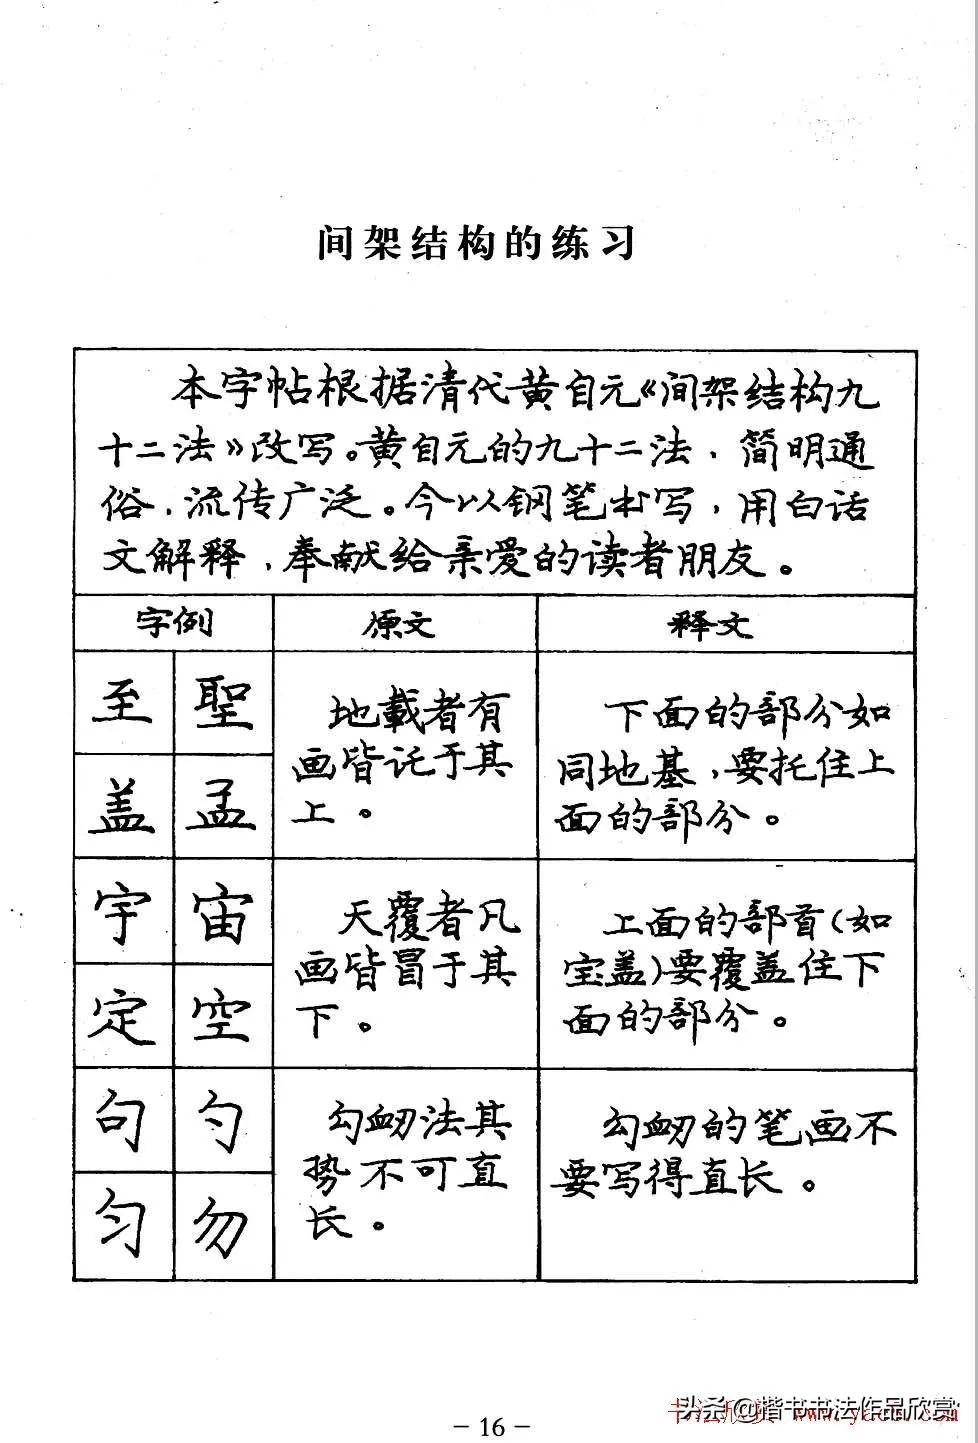 间架结构的练习
本字帖根据清代黄自元《间架结构九
十二法》改写。黄自元的九十二法、简明通
俗、流传广泛。今以钢笔书写，用白话
文解释、奉献给亲爱的读者朋友。
字例 原文 释文
至 聖
盖 孟
地載者有
画皆讬于其
上。
下面的部分如
同地基，要托住上
面的部分。
宇 宙
定 空
天覆者凡
画皆冒于其
下。
上面的部首(如
宝盖)要覆盖住下
面的部分。
句 勺
匀 勿
勾衂法其
势不可直
长。
勾衂的笔画不
要写得直长。
- 16 -
头条@楷书书法作品欣赏